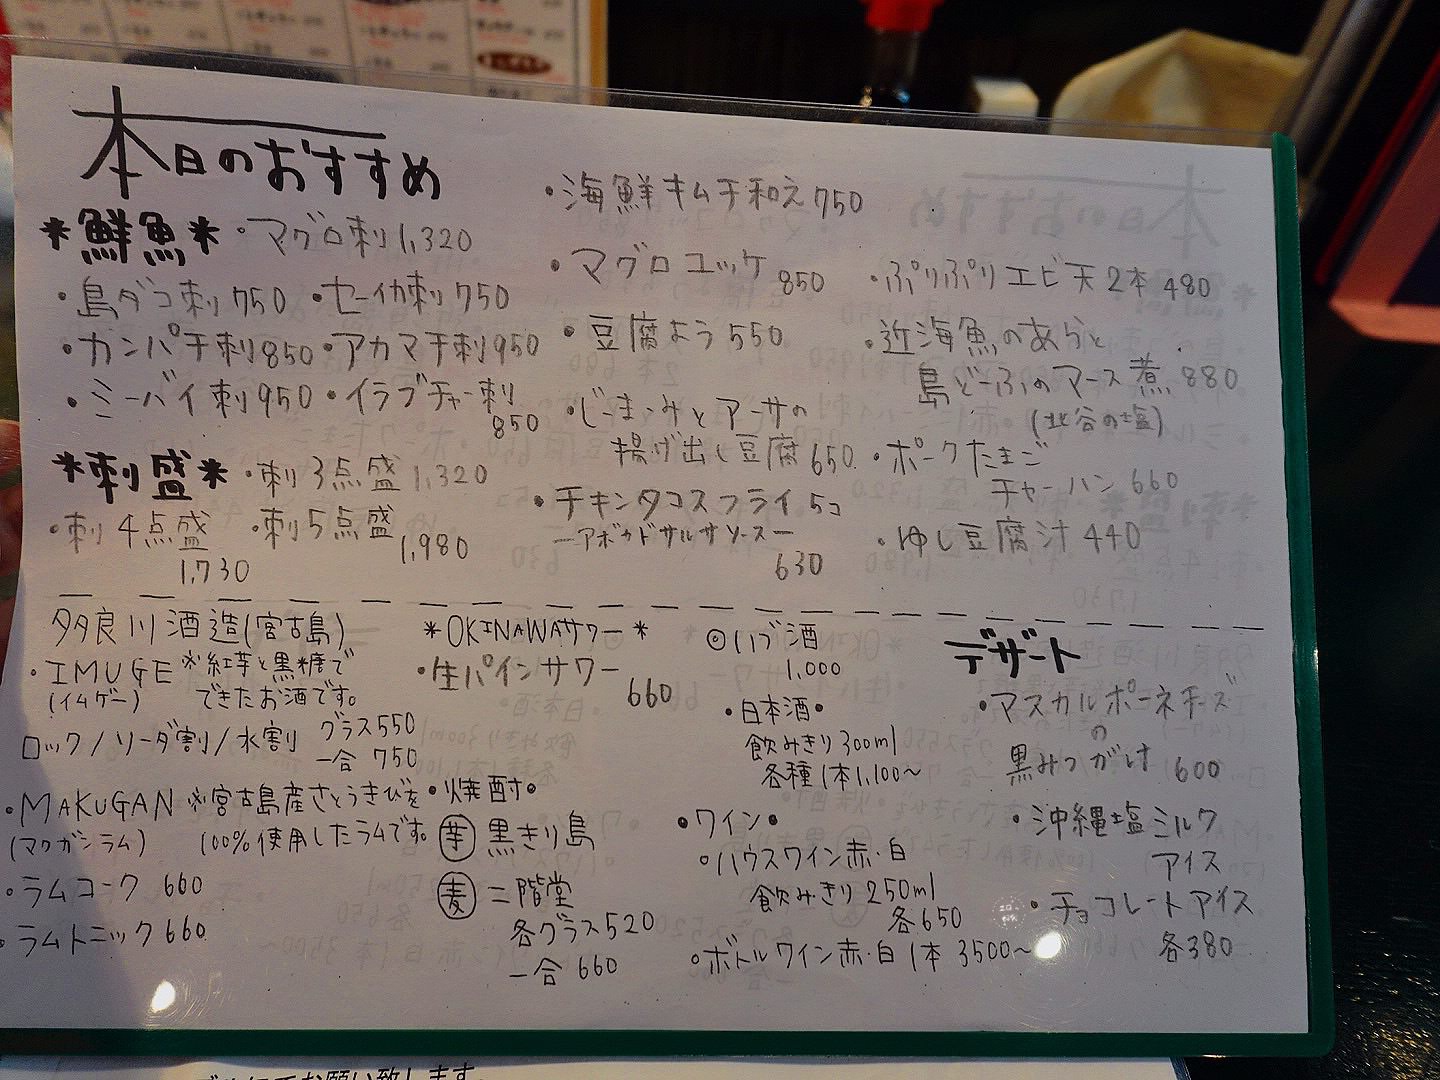 本日のおすすめ
*鮮魚*
・マグロ刺 1,320
・島ダコ刺 750 ・セーイカ刺 750
・カンパチ刺 850 ・アカマチ刺 950
・ミーバイ刺 950 ・イラブチャー刺
850
*刺盛*
・刺3点盛 1,320
・刺4点盛
1,730
・刺5点盛
1,980
・海鮮キムチ和え 750
・マグロユッケ
850
・豆腐よう 550
・じーまーみとアーサの
揚げ出し豆腐 650
・チキンタコスフライ 5コ
ーアボカドサルサソースー
630
・ぷりぷりエビ天 2本 480
・近海魚のあらと
島どーふのマース煮 880
(北谷の塩)
・ポークたまご
チャーハン 660
・ゆし豆腐汁 440
多良川酒造(宮古島)
・IMUGE ※紅芋と黒糖で
(イムゲー) できたお酒です。
ロック/ソーダ割/水割 グラス 550
一合 750
・MAKUGAN ※宮古島産さとうきびを
(マクガンラム) 100%使用したラムです。
・ラムコーク 660
・ラムトニック 660
*OKINAWAサワー*
・生パインサワー
660
・焼酎・
芋 黒きり島
麦 二階堂
各グラス 520
一合 660
◎ハブ酒
1,000
・日本酒・
飲みきり 300ml
各種1本 1,100〜
・ワイン・
○ハウスワイン赤・白
飲みきり 250ml
各650
・ボトルワイン赤・白 1本 3500〜
デザート
・マスカルポーネチーズ
の
黒みつがけ 600
・沖縄塩ミルク
アイス
・チョコレートアイス
各380
お願い致します。